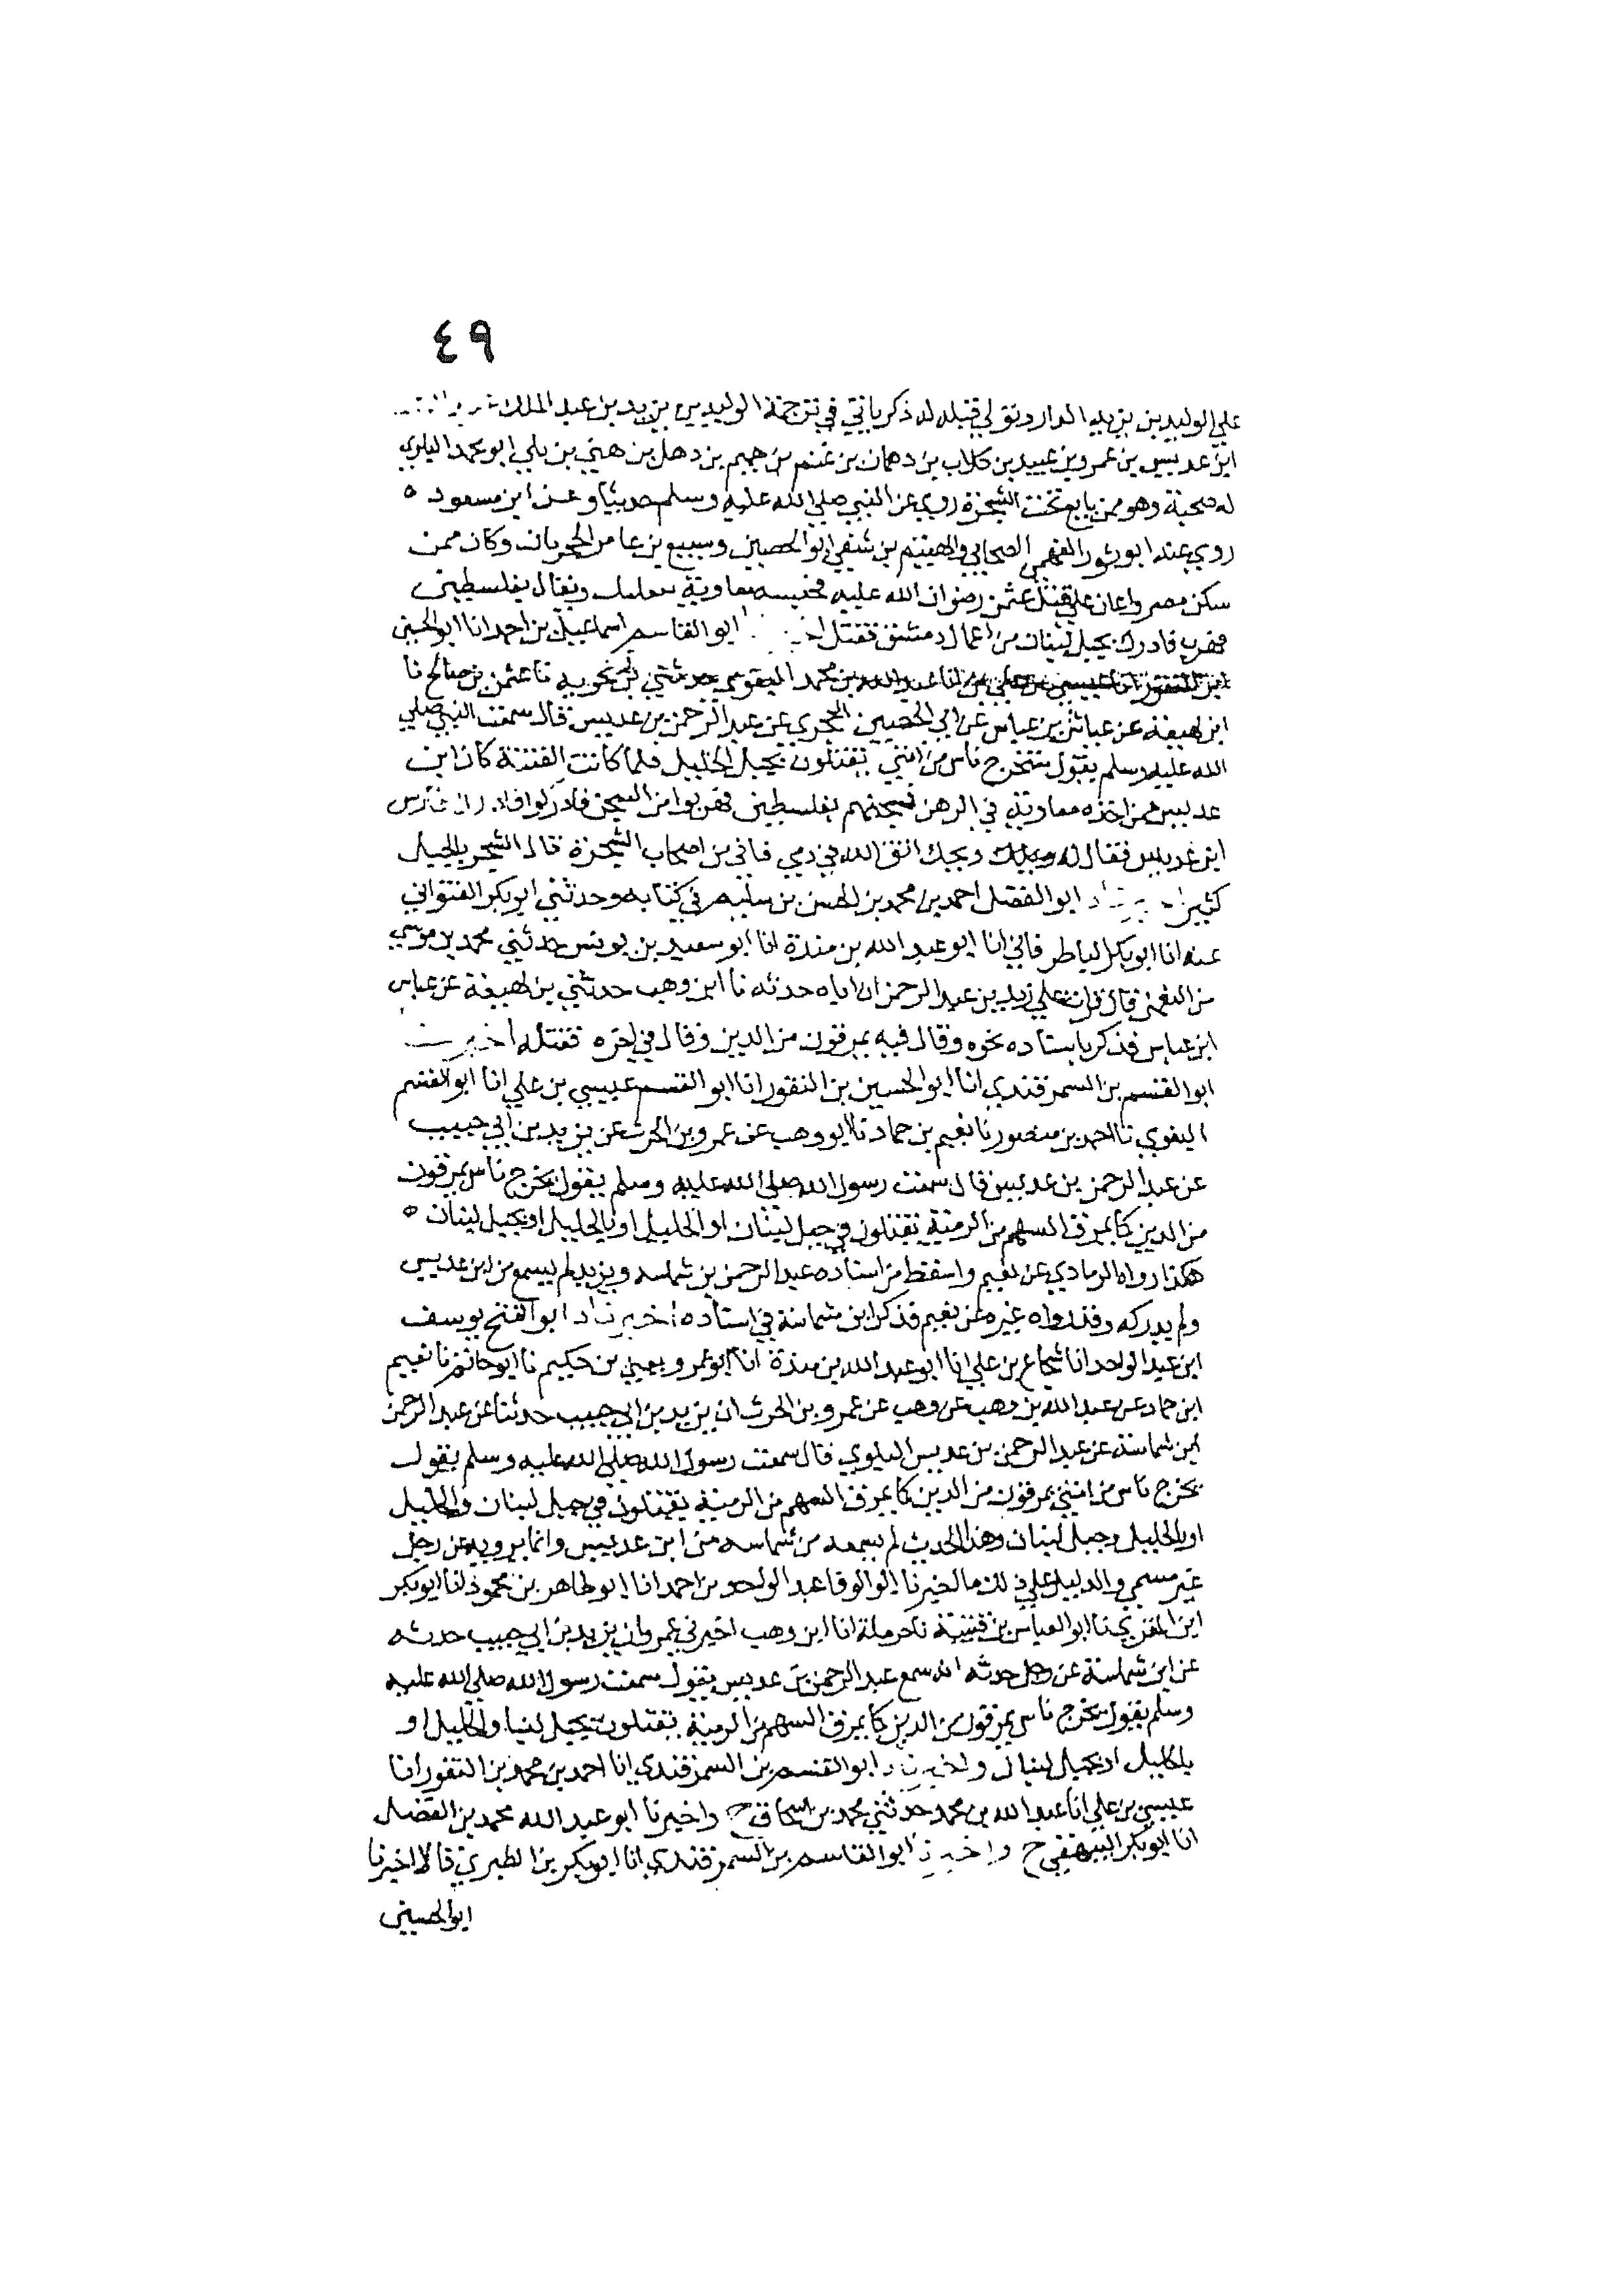 ٤٩
علي الوليد بن يزيد الدار وتولي قتله له ذكر ياتي في ترجمة الوليد بن يزيد بن عبد الملك
ابن عديس بن عمرو بن عبيد بن كلاب بن دهمان بن غنم بن هميم بن ذهل بن هني بن بلي ابو محمد البلوي
له صحبة وهو ممن بايع تحت الشجرة روي عن النبي صلي الله عليه وسلم حديثا وعن ابن مسعود ٥
روي عنه ابو ثور الفهمي الصحابي والهيثم بن شفي ابو الحصين وسبيع بن عامر الحجريان وكان ممن
سكن مصر واعان علي قتل عثمن رضوان الله عليه فحبسه معاوية ببعلبك ويقال بفلسطين
فهرب فادرك بجبل لبنان من اعمال دمشق فقتل ابو القاسم اسماعيل بن احمد انا ابو الحسين
ابن النقور انا عيسي بن علي انا عبد الله بن محمد البغوي حدثني بن زنجويه نا عثمن بن صالح نا
ابن لهيعة عن عياش بن عباس عن ابي الحصين الحجري عن عبد الرحمن بن عديس قال سمعت النبي صلي
الله عليه وسلم يقول سيخرج ناس من امتي يقتلون بجبل الخليل فلما كانت الفتنة كان ابن
عديس ممن اخذه معاوية في الرهن فسجنهم بفلسطين فهربوا من السجن فادركوا فارس
ابن عديس فقال له ويحك اتق الله في دمي فاني من اصحاب الشجرة قال الشجر بالجبل
كثير ابو الفضل احمد بن محمد بن الحسن بن سليم في كتابه وحدثني ابو بكر اللفتواني
عنه انا ابو بكر الباطرقاني انا ابو عبد الله بن مندة انا ابو سعيد بن يونس حدثني محمد بن موسي
بن النعمن قال قرات علي زيد بن عبد الرحمن ان اباه حدثه نا ابن وهب حدثني بن لهيعة عن عياس
ابن عباس فذكر باسناده نحوه وقال فيه يمرقون من الدين وقال في اخره فقتله اخبرنا
ابو القسم بن السمرقندي انا ابو الحسين بن النقور انا ابو القسم عيسي بن علي انا ابو القسم
البغوي نا احمد بن منصور نا نعيم بن حماد نا ابن وهب عن عمرو بن الحرث عن يزيد بن ابي حبيب
عن عبد الرحمن بن عديس قال سمعت رسول الله صلي الله عليه وسلم يقول يخرج ناس يمرقون
من الدين كما يمرق السهم من الرمية يقتلون في جبل لبنان او الخليل او بالجليل او بجبل لبنان ٥
هكذا رواه الرمادي عن نعيم واسقط من اسناده عبد الرحمن بن شماسه ويزيد لم يسمع من ابن عديس
ولم يدركه وقد رواه غيره عن نعيم فذكر ابن شماسة في اسناده اخبرناه ابو الفتح يوسف
ابن عبد الواحد انا شجاع بن علي انا ابو عبد الله بن مندة انا ابو عمرو بن حكيم نا ابو حاتم نا نعيم
ابن حماد عن عبد الله بن وهب عن وهب عن عمرو بن الحرث ان يزيد بن ابي حبيب حدثنا عن عبد الرحمن
ابن شماسة عن عبد الرحمن بن عديس البلوي قال سمعت رسول الله صلي الله عليه وسلم يقول
يخرج ناس من امتي يمرقون من الدين كما يمرق السهم من الرمية يقتلون في جبل لبنان والخليل
او بالجليل وجبل لبنان وهذا الحديث لم يسمعه بن شماسه من ابن عديس وانما يرويه عن رجل
غير مسمي والدليل علي ذلك ما اخبرنا ابو الوفا عبد الواحد بن احمد انا ابو طاهر بن محمود انا ابو بكر
ابن المقري نا ابو العباس بن قتيبة نا حرملة انا ابن وهب اخبرني عمرو ان يزيد بن ابي حبيب حدثه
عن ابن شماسة عن رجل حدثه انه سمع عبد الرحمن بن عديس يقول سمعت رسول الله صلي الله عليه
وسلم يقول سيخرج ناس يمرقون من الدين كما يمرق السهم من الرمية يقتلون بجبل لبنا والخليل او
بالجليل او بجبل لبنان واخبرناه ابو القسم بن السمرقندي انا احمد بن محمد بن النقور انا
عيسي بن علي انا عبد الله بن محمد حدثني محمد بن اسحاق ح واخبرنا ابو عبد الله محمد بن الفضل
انا ابو بكر البيهقي ح واخبرنا ابو القاسم بن السمرقندي انا ابو بكر بن الطبري قالا اخبرنا
ابو الحسين